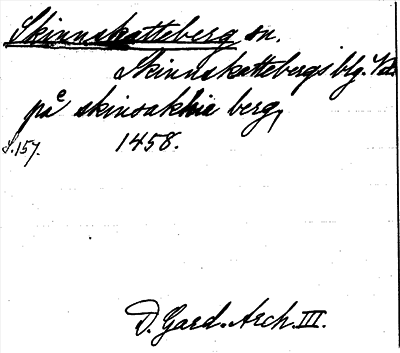 Skinnskatteberg sn.
Skinnskattebergs blg. Vstm.
på skinsakkia berg,
S. 157. 1458.
D. Gard. Arch. III.